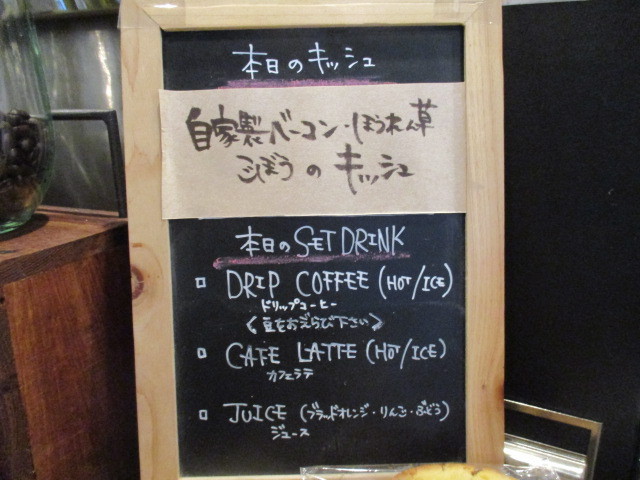 本日のキッシュ
自家製ベーコン・ほうれん草
ごぼうのキッシュ
本日のSET DRINK
DRIP COFFEE (HOT/ICE)
ドリップコーヒー
〈豆をおえらび下さい〉
CAFE LATTE (HOT/ICE)
カフェラテ
JUICE (ブラッドオレンジ・りんご・ぶどう)
ジュース